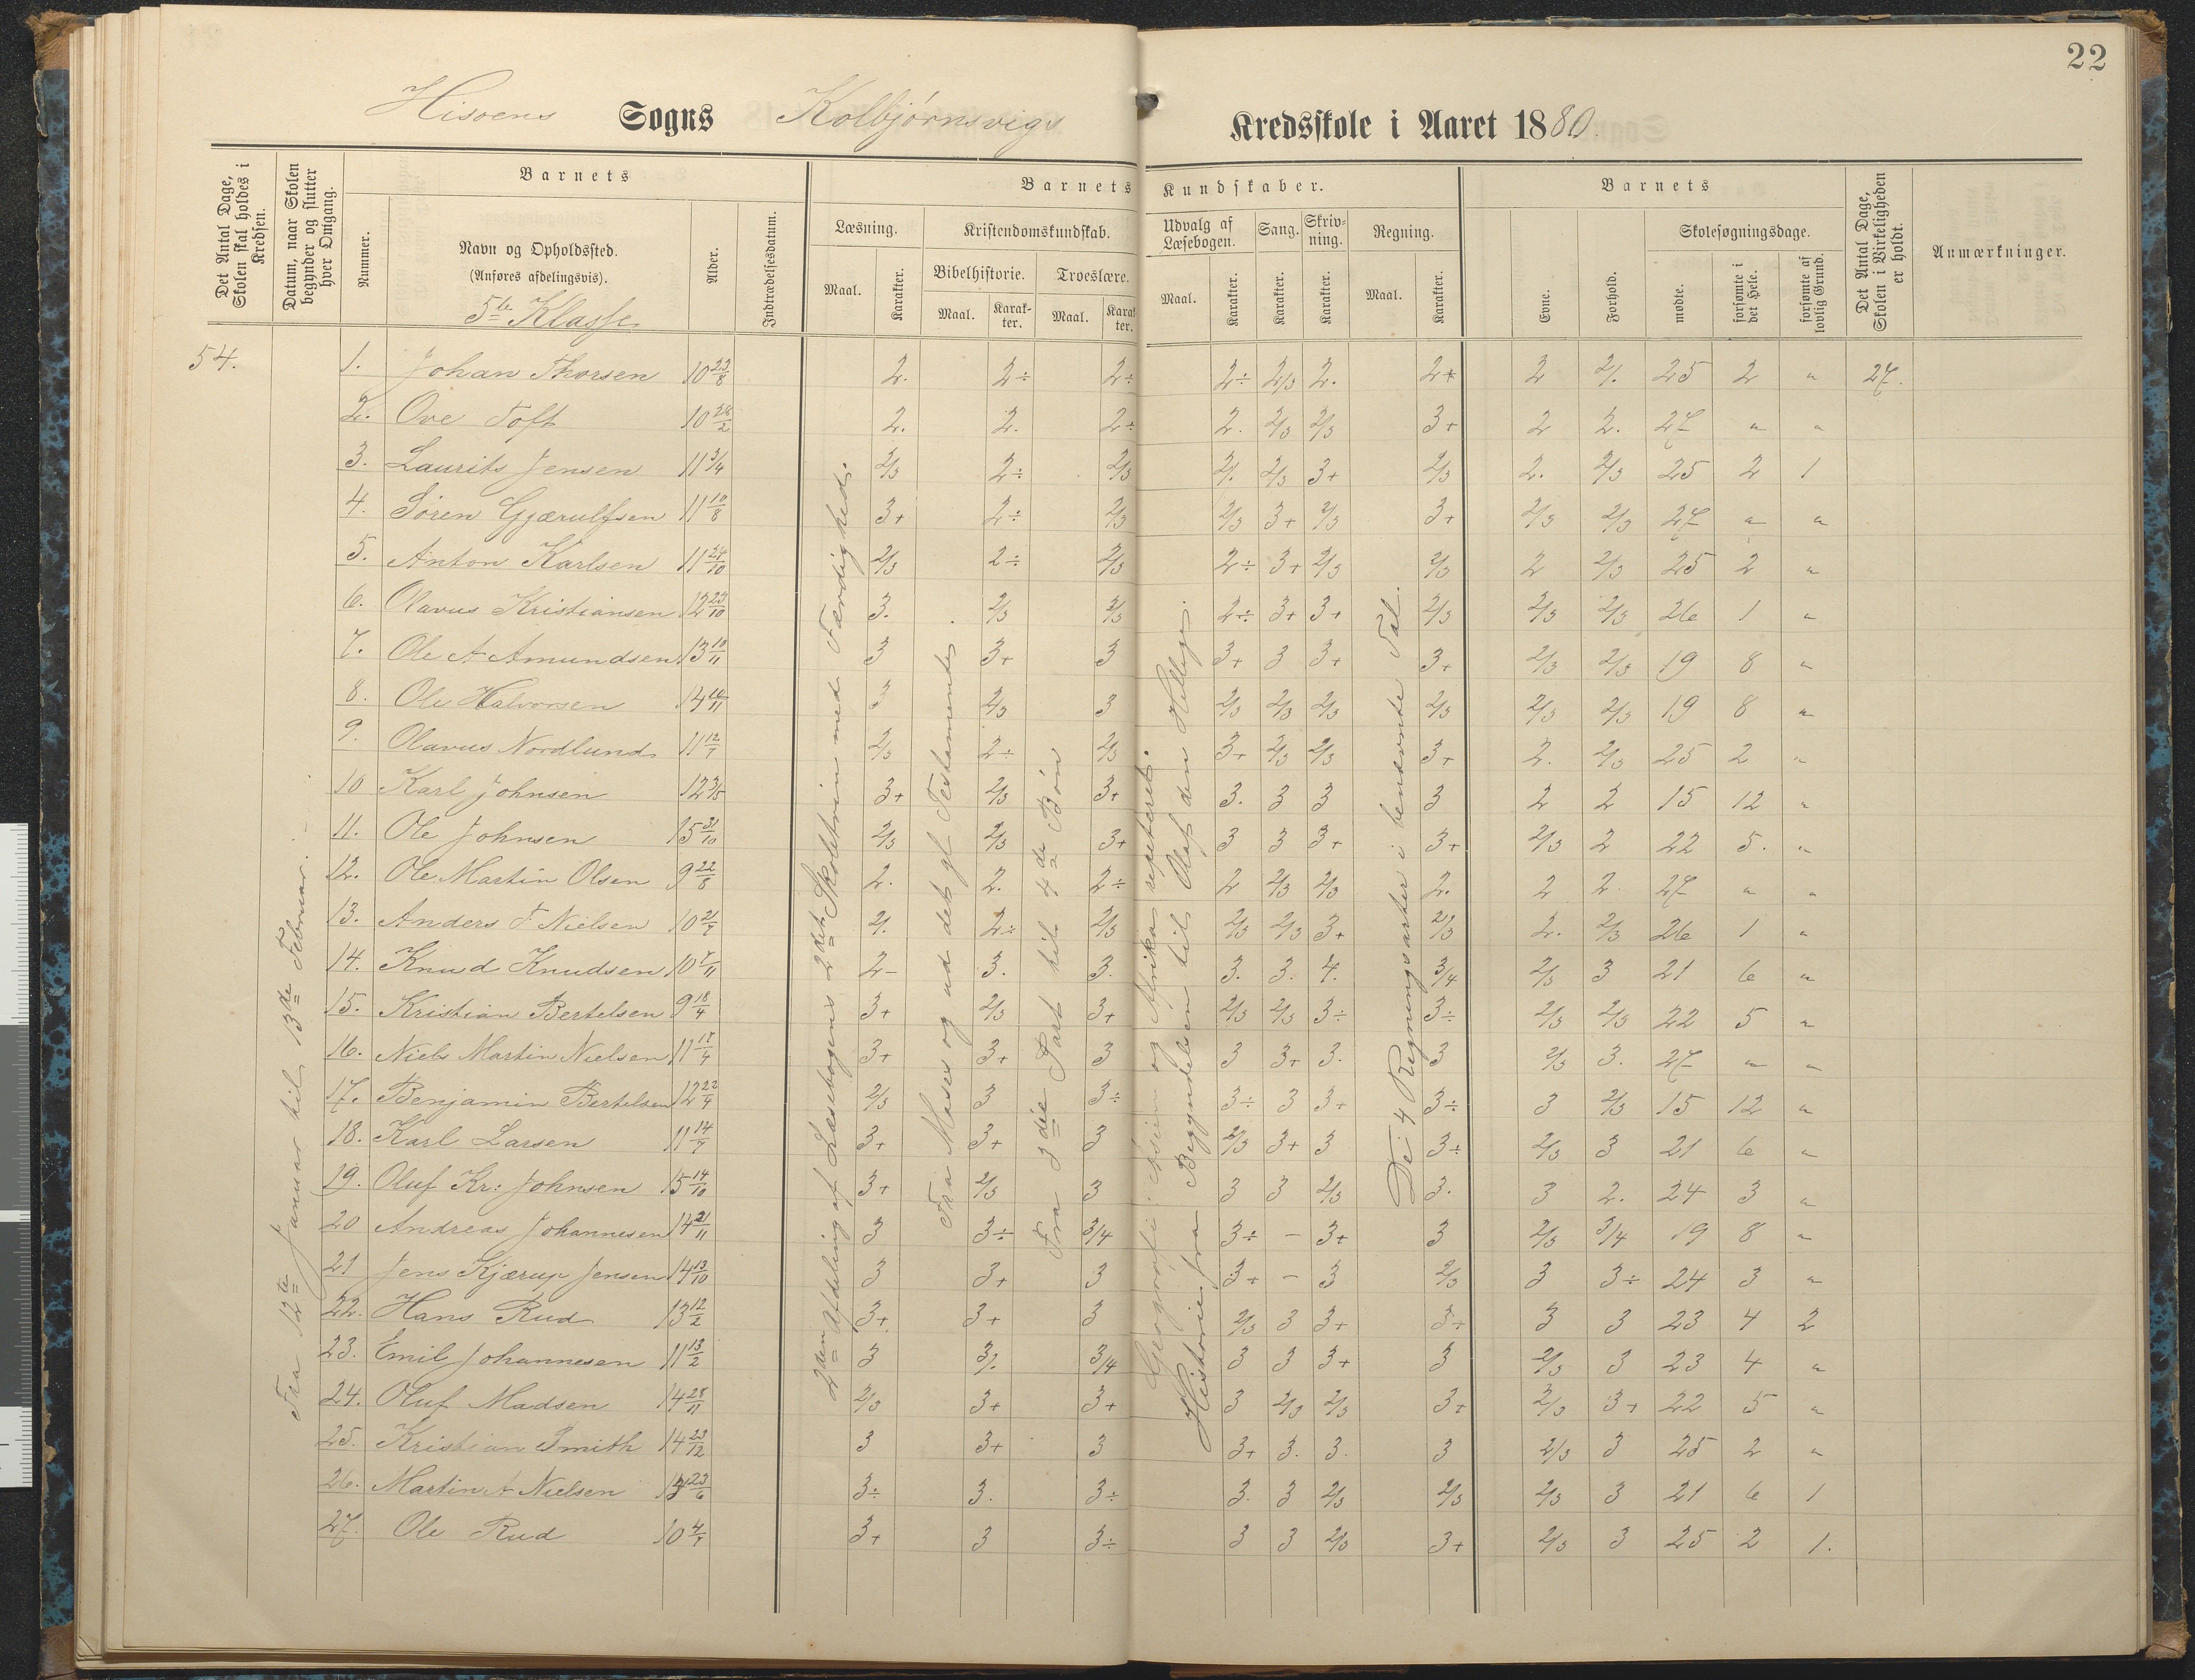 22
Hisöens Sogns Kolbjörnsvigs Kredsskole i Aaret 1880.
Det Antal Dage, Skolen skal holdes i Kredsen.
Datum, naar Skolen begynder og slutter hver Omgang.
Barnets
Nummer.
Navn og Opholdssted.
(Anføres afdelingsvis).
5te Klasse
Alder.
Indtrædelsesdatum.
Barnets Kundskaber.
Læsning.
Maal.
Karakter.
Kristendomskundskab.
Bibelhistorie.
Maal.
Karakter.
Troeslære.
Maal.
Karakter.
Udvalg af Læsebogen.
Maal.
Karakter.
Sang.
Karakter.
Skrivning.
Karakter.
Regning.
Maal.
Karakter.
Barnets
Evne.
Forhold.
Skolesøgningsdage.
mødte.
forsømte i det Hele.
forsømte af lovlig Grund.
Det Antal Dage, Skolen i Virkeligheden er holdt.
Anmærkninger.
54.
Fra 12te Januar til 13de Februar.
2den Afdeling af Læsebogens 2det Skoletrin med Færdighed.
Fra Moses og ud det gl. Testamente
Fra 3die Part til 4de Bön
Geografi: Asien og Afrika repeteret.
Historie fra Begyndelsen til Olaf den Hellige.
De 4 Regningsarter i benævnte Tal.
1. Johan Thorsen 10 23/8 2. 2÷ 2÷ 2÷ 2/3 2. 2+ 2 2. 25 2 " 27.
2. Ove Toft 10 28/2 2. 2. 2÷ 2. 2/3 2/3 3+ 2 2. 27 " "
3. Laurits Jensen 11 3/4 2/3 2÷ 2/3 2. 2/3 3+ 2/3 2. 2/3 25 2 1
4. Sören Gjærulfsen 11 10/8 3+ 2÷ 2/3 2/3 3+ 2/3 3+ 2/3 2/3 27 " "
5. Anton Karlsen 11 24/10 2/3 2÷ 2/3 2÷ 3+ 2/3 2/3 2 2/3 25 2 "
6. Olavus Kristiansen 12 23/10 3. 2/3 2/3 2÷ 3+ 3+ 2/3 2/3 2/3 26 1 "
7. Ole A Amundsen 13 10/11 3 3+ 3 3+ 3 3+ 3+ 2/3 2/3 19 8 "
8. Ole Halvorsen 14 10/11 3 2/3 3 2/3 2/3 2/3 2/3 2/3 2/3 19 8 "
9. Olavus Nordlund 11 12/7 2/3 2÷ 2/3 3+ 2/3 2/3 3+ 2. 2/3 25 2 "
10 Karl Johnsen 12 3/5 3+ 2/3 3+ 3. 3 3 3 2 2 15 12 "
11. Ole Johnsen 15 31/10 2/3 2/3 3+ 3 3 3+ 3+ 2/3 2 22 5. "
12. Ole Martin Olsen 9 22/8 2. 2. 2÷ 2 2/3 2/3 2. 2 2 27 " "
13. Anders F Nielsen 10 21/7 2. 2÷ 2/3 2/3 2/3 3+ 2/3 2. 2/3 26 1 "
14. Knud Knudsen 10 7/11 2- 3. 3. 3. 3. 4. 3/4 2/3 3 21 6 "
15. Kristian Bertelsen 9 18/4 3+ 2/3 3+ 2/3 2/3 3÷ 3÷ 2/3 2/3 22 5 "
16. Niels Martin Nielsen 11 17/4 3+ 3+ 3 3 3+ 3. 3 2/3 3. 27 " "
17. Benjamin Bertelsen 12 22/4 2/3 3 3÷ 3÷ 3 3+ 3÷ 3 2/3 15 12 "
18. Karl Larsen 11 14/7 3+ 3+ 3 2/3 3+ 3 3÷ 2/3 3 21 6 "
19. Oluf Kr: Johnsen 15 14/10 3+ 2/3 3 3 3 2/3 3. 3 2. 24 3 "
20 Andreas Johannesen 14 21/11 3 3÷ 3/4 3÷ - 3+ 3 2/3 3/4 19 8 "
21 Jens Kjærup Jensen 14 13/10 3 3+ 3 3+ - 3 2/3 3 3÷ 24 3 "
22. Hans Rud 13 12/2 3+ 3+ 3 2/3 3 3+ 3+ 3 3 23 4 2
23. Emil Johannesen 11 13/2 3 3/. 3/4 3 3 3+ 3 2/3 3 23 4 "
24. Oluf Madsen 14 28/11 2/3 3+ 3+ 3 2/3 2/3 3+ 2/3 3+ 22 5 "
25. Kristian Smith 14 23/12 3 3+ 3 3+ 3. 3. 3 2/3 3 25 2 "
26. Martin A Nielsen 23/6 3÷ 3. 3÷ 3. 3 2/3 2/3 2/3 3 21 6 1
27. Ole Rud 10 4/7 3+ 3 3÷ 3 3 2/3 3+ 2/3 3 25 2 1.